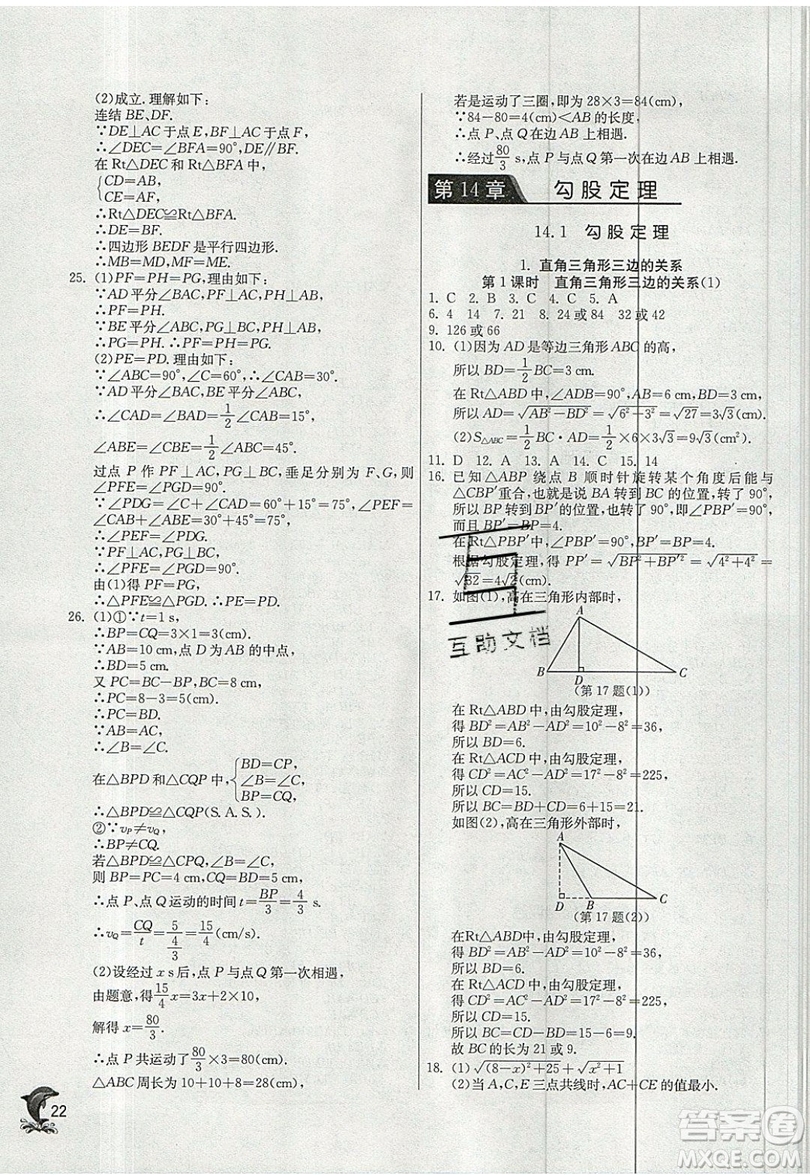 (2)成立.理解如下:
连结 BE、DF.
∵DE⊥AC于点E,BF⊥AC于点F,
∴∠DEC=∠BFA=90°,DE∥BF.
在 Rt△DEC 和 Rt△BFA 中,
{CD=AB,
CE=AF,
∴Rt△DEC≌Rt△BFA.
∴DE=BF.
∴四边形 BEDF 是平行四边形.
∴MB=MD,ME=MF.
25. (1)PF=PH=PG,理由如下:
∵AD平分∠BAC,PF⊥AC,PH⊥AB,
∴PF=PH.
∵BE平分∠ABC,PG⊥BC,PH⊥AB,
∴PH=PG.∴PF=PH=PG.
(2)PE=PD.理由如下:
∵∠ABC=90°,∠C=60°,∴∠CAB=30°.
∵AD平分∠BAC,BE平分∠ABC,
∴∠CAD=∠BAD=1/2∠CAB=15°,
∠ABE=∠CBE=1/2∠ABC=45°.
过点 P 作 PF⊥AC,PG⊥BC,垂足分别为 F、G,则
∠PFE=∠PGD=90°.
∵∠PDG=∠C+∠CAD=60°+15°=75°,∠PEF=
∠CAB+∠ABE=30°+45°=75°,
∴∠PEF=∠PDG.
∵PF⊥AC,PG⊥BC,
∴∠PFE=∠PGD=90°.
由(1)得 PF=PG,
∴△PFE≌△PGD.∴PE=PD.
26. (1)①∵t=1 s,
∴BP=CQ=3×1=3(cm).
∵AB=10 cm,点 D 为 AB 的中点,
∴BD=5 cm.
又 PC=BC-BP,BC=8 cm,
∴PC=8-3=5(cm).
∴PC=BD.
∵AB=AC,
∴∠B=∠C.
在△BPD 和△CQP 中,{BD=CP,
∠B=∠C,
BP=CQ,
∴△BPD≌△CQP(S.A.S.).
②∵vP≠vQ,
∴BP≠CQ.
若△BPD≌△CPQ,∠B=∠C,
则 BP=PC=4 cm,CQ=BD=5 cm,
∴点 P、点 Q 运动的时间 t=BP/3=4/3 s.
∴vQ=CQ/t=5/(4/3)=15/4(cm/s).
(2)设经过 x s后,点 P 与点 Q 第一次相遇,
由题意,得15/4x=3x+2×10,
解得 x=80/3.
∴点 P 共运动了80/3×3=80(cm).
△ABC 周长为 10+10+8=28(cm),
22
若是运动了三圈,即为 28×3=84(cm),
∵84-80=4(cm)<AB 的长度,
∴点 P、点 Q 在边 AB 上相遇.
∴经过80/3 s,点 P 与点 Q 第一次在边 AB 上相遇.
第 14 章 勾股定理
14.1 勾股定理
1. 直角三角形三边的关系
第 1 课时 直角三角形三边的关系(1)
1. C 2. B 3. A 4. C 5. A
6. 4 14 7. 8 8. 24 或 84 32 或 42
9. 126 或 66
10. (1)因为 AD 是等边三角形 ABC 的高,
所以 BD=1/2BC=3 cm.
在 Rt△ABD 中,∠ADB=90°,AB=6 cm,BD=3 cm,
所以 AD=√(AB²-BD²)=√(6²-3²)=√27=3√3(cm).
(2)S△ABC=1/2BC·AD=1/2×6×3√3=9√3(cm²).
11. D 12. A 13. A 14. 15 15. 14
16. 已知△ABP 绕点 B 顺时针旋转某个角度后能与
△CBP′重合,也就是说 BA 转到 BC 的位置,转了 90°,
所以 BP 转到 BP′的位置,也转了 90°,即∠PBP′=90°,
而且 BP′=BP=4.
在 Rt△PBP′中,∠PBP′=90°,BP′=BP=4.
根据勾股定理,得 PP′=√(BP²+BP′²)=√(4²+4²)=
√32=4√2(cm).
17. 如图(1),高在三角形内部时,
A
B D C
(第 17 题(1))
在 Rt△ABD 中,由勾股定理,
得 BD²=AB²-AD²=10²-8²=36,
所以 BD=6.
在 Rt△ACD 中,由勾股定理,
得 CD²=AC²-AD²=17²-8²=225,
所以 CD=15.
所以 BC=BD+CD=6+15=21.
如图(2),高在三角形外部时,
A
D B C
(第 17 题(2))
在Rt△ABD中,由勾股定理,
得 BD²=AB²-AD²=10²-8²=36,
所以 BD=6.
在 Rt△ACD 中,由勾股定理,
得 CD²=AC²-AD²=17²-8²=225,
所以 CD=15.
所以 BC=CD-BD=15-6=9.
故 BC 的长为 21 或 9.
18. (1)√((8-x)²+25)+√(x²+1)
(2)当 A、C、E 三点共线时,AC+CE 的值最小.
互助文档
答案圈
MXQE.COM